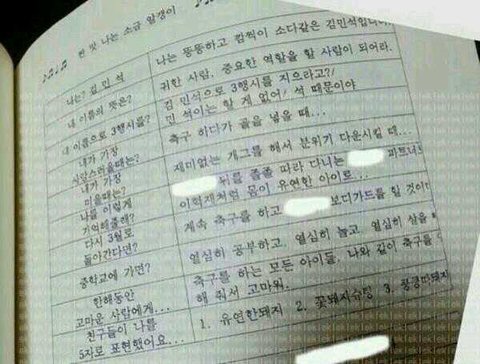 ♪♫♩♫ 짠 맛 나는 소금 알갱이
나는? 김 민 석
나는 뚱뚱하고 깜찍이 소다같은 김민석입니다
내 이름의 뜻은?
귀한 사람. 중요한 역할을 할 사람이 되어라.
내 이름으로 3행시를?
김 민석으로 3행시를 지으라고?!
민 석이는 할 게 없어! 석 때문이야
내가 가장
사랑스러울때는?
축구 하다가 골을 넣을 때...
내가 가장
미울때는?
재미없는 개그를 해서 분위기 다운시킬 때...
나를 이렇게
기억해줄래?
뒤를 졸졸 따라 다니는 파트너
이력재처럼 몸이 유연한 아이로...
다시 3월로
돌아간다면?
계속 축구를 하고 보디가드를 할 것이다
중학교에 가면?
열심히 공부하고, 열심히 놀고, 열심히 살을
한해동안
고마운 사람에게...
축구를 하는 모든 아이들, 나와 같이 축구를
해 줘서 고마워.
친구들이 나를
5자로 표현했어요...
1. 유연한돼지 2. 꽃돼지슈팅 3.